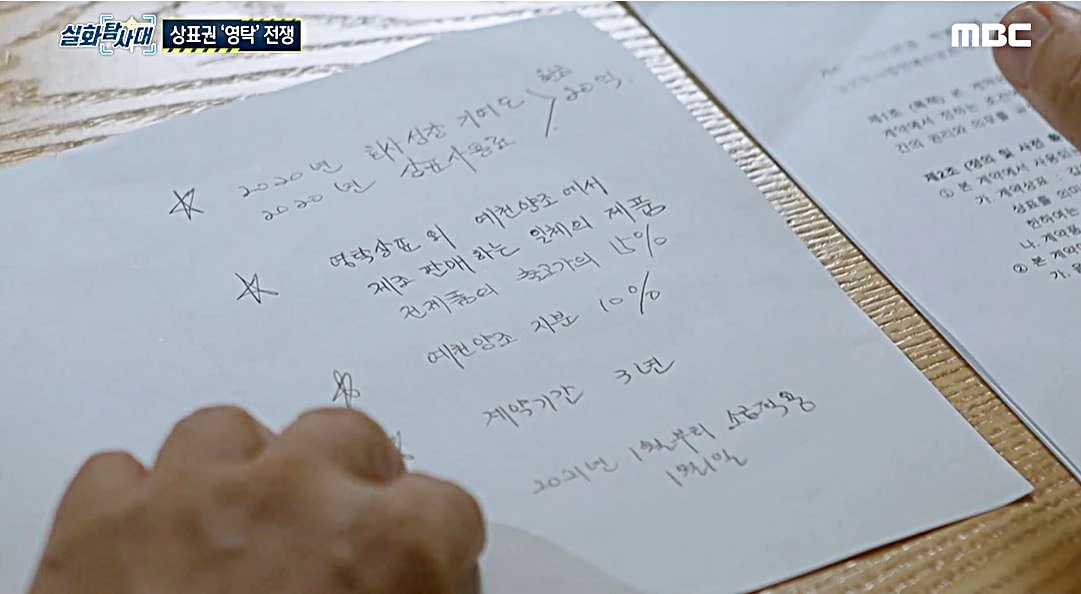 실화탐사대
상표권 '영탁' 전쟁
MBC
2020년 회사성장 기여도
2020년 상표사용료
20억
영탁상표 외 예천양조에서
제조 판매하는 일체의 제품
전제품의 출고가의 15%
예천양조 지분 10%
계약기간 3년
2021년 1월부터 소급적용
1월1일
제1조 (목적) 본 계약
계약에서 정하는 조건
간의 권리와 의무를
제2조 (정의 및 사전
① 본 계약에서 사용되
가. 계약상표 :
상표를 의미
한하여는
나. 계약품
② 본 계약
가.